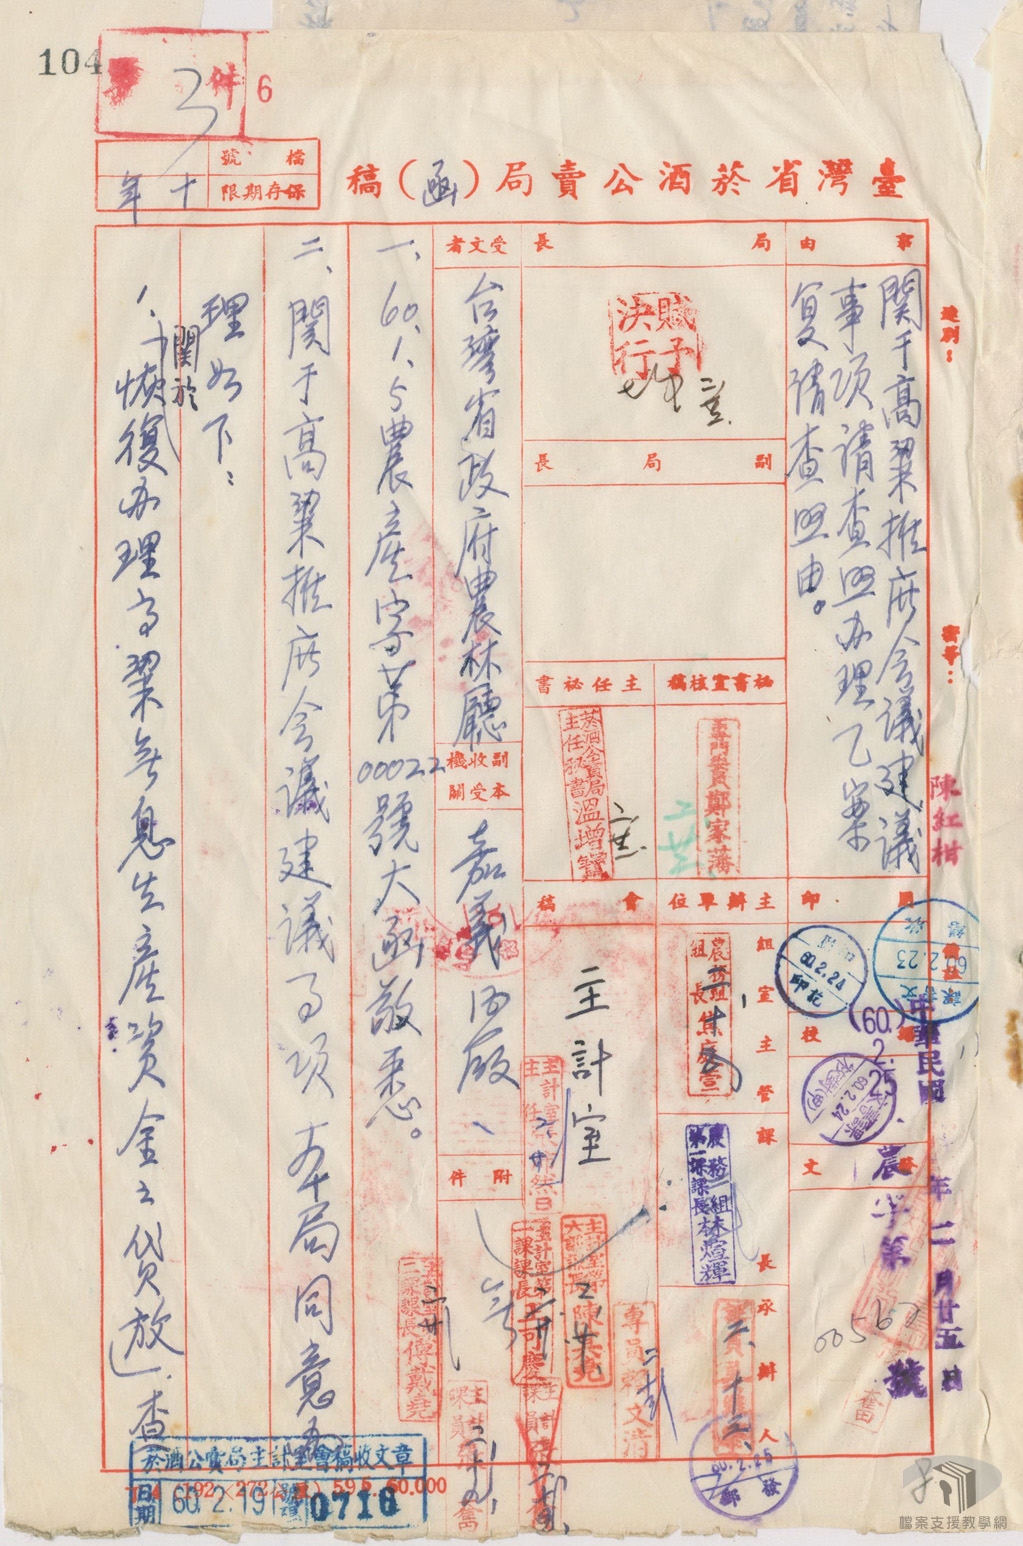 104
件
6
檔號
保存期限
十年
臺灣省菸酒公賣局（函）稿
速別：
密等：
事由
關于高粱推広会議建議
事項請查照办理乙案
复請查照由。
局長
賦予
決行
副局長
秘書室核稿
主任秘書
專門委員鄭家藩
菸酒公賣局
主任秘書溫增寶
受文者
台灣省政府農林廳
副本收受機關
嘉義酒廠、
附件
會稿
主計室
主辦單位
組室主管
農務組
組長焦慶雲
課長
農務組
第一課課長林燈輝
承辦人
印
60.2.24
60.2.23
陳紅柑
校
60.2.24
發文
中華民國
(60. 2.25
年二月廿五日
農字第
00562
號
60.2.25
發郵
專員賴文清
一、60.1.5農產字第00022號大函敬悉。
二、關于高粱推広会議建議事項本局同意办
理如下：
1.關於「恢復办理高粱無息生產資金之貸放」查
菸酒公賣局主計室會稿收文章
日期 60.2.19 號 0710
(192×272公厘) 59.5. 60.000
檔案支援教學網